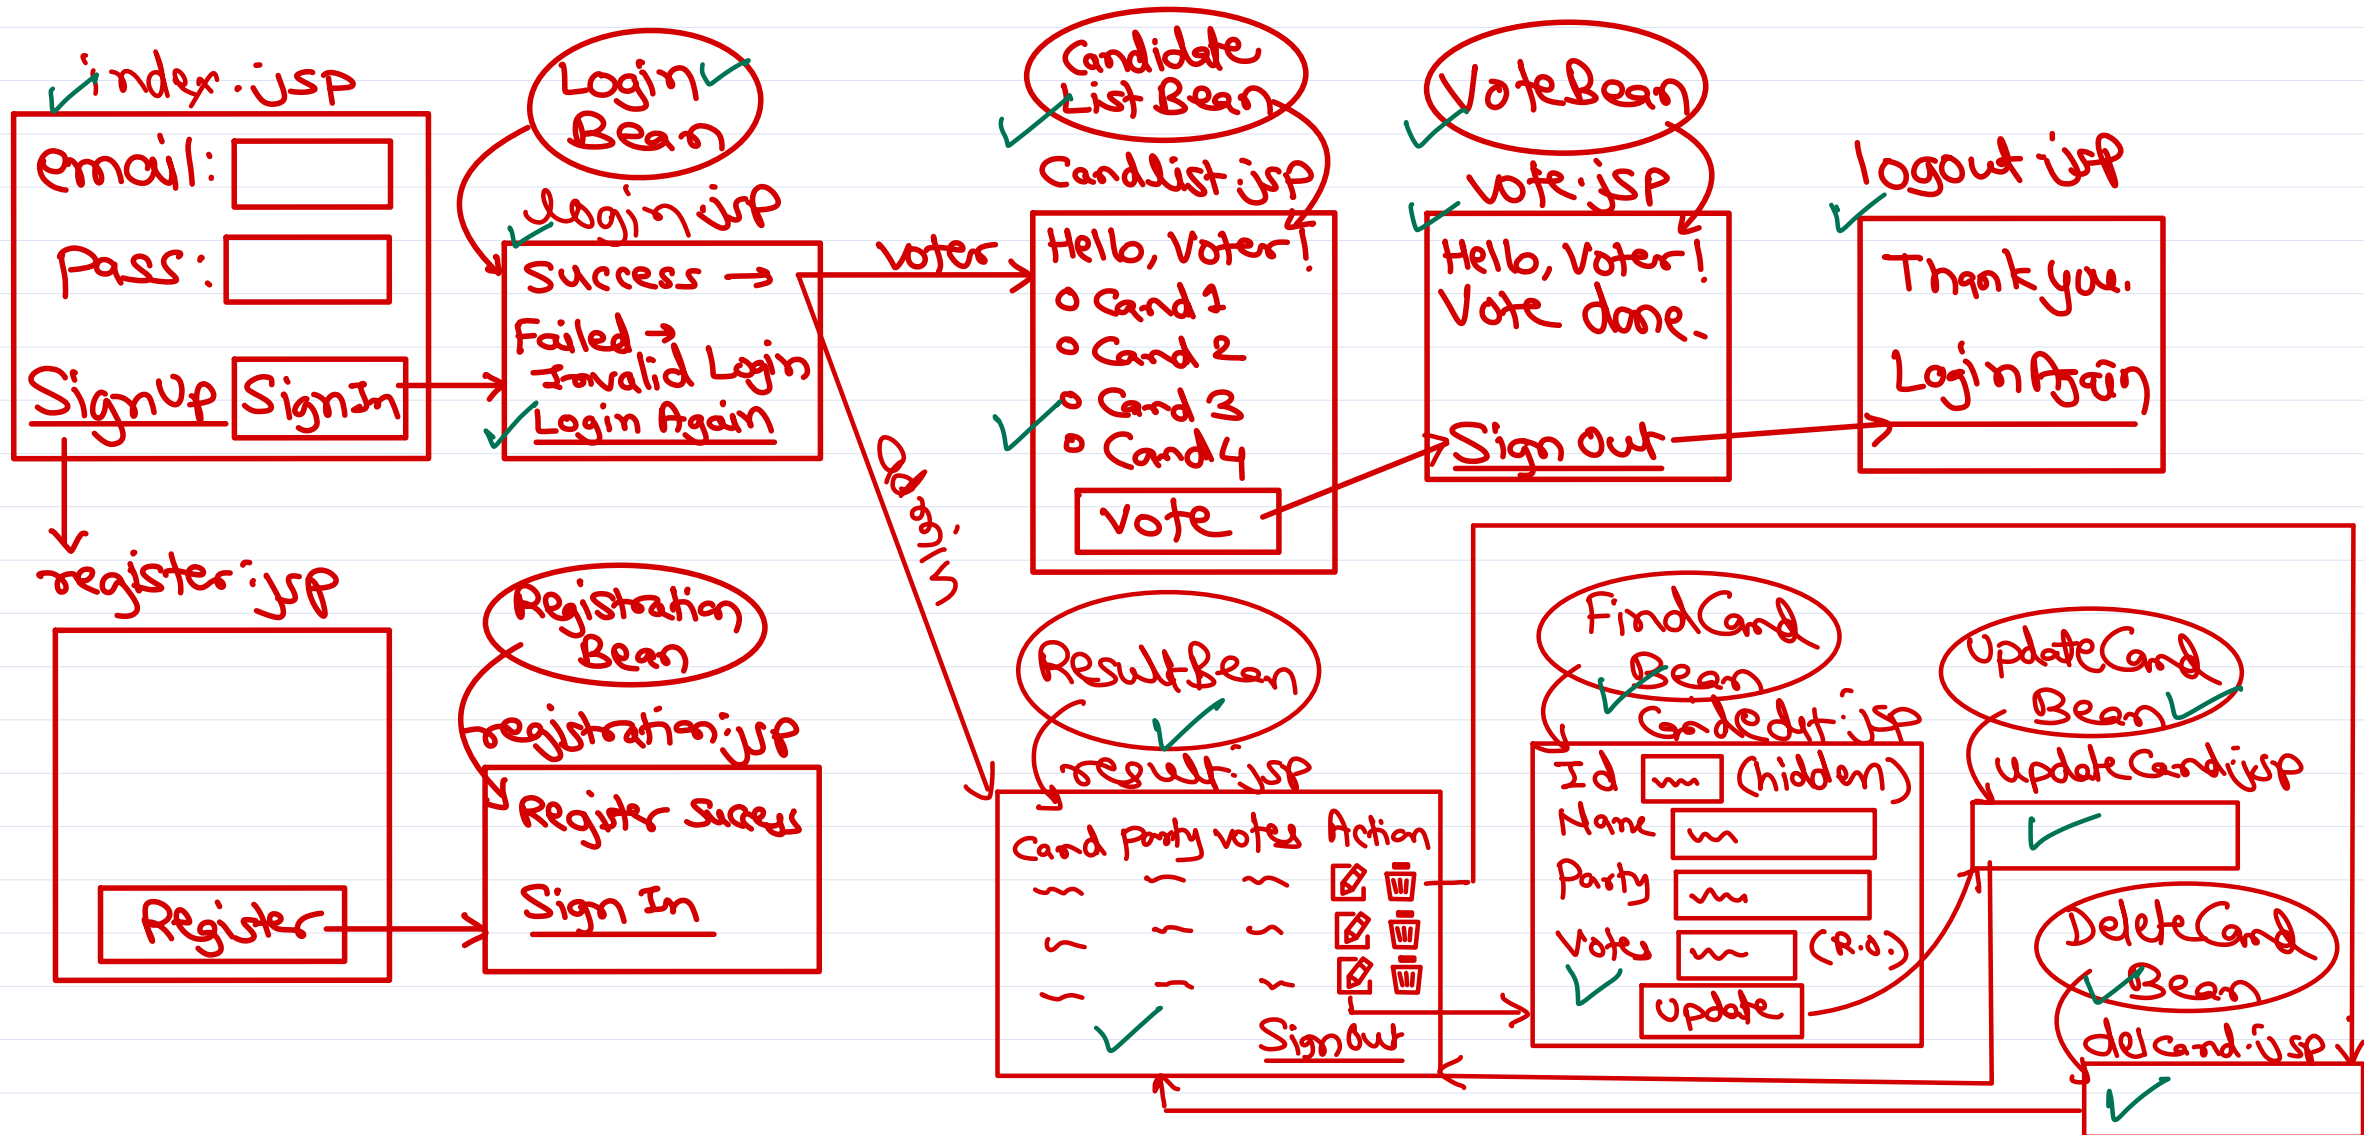 index.jsp
email:
Pass:
SignUp SignIn
Login
Bean
login.jsp
Success →
Failed →
Invalid Login
Login Again
Voter
Admin
Candidate
List Bean
Candlist.jsp
Hello, Voter!
Cand 1
Cand 2
Cand 3
Cand 4
Vote
VoteBean
vote.jsp
Hello, Voter!
Vote done.
Sign Out
logout.jsp
Thank you.
Login Again
register.jsp
Register
Registration
Bean
registration.jsp
Register Success
Sign In
ResultBean
result.jsp
Cand Party Votes Action
Sign Out
FindCand
Bean
candedit.jsp
Id (hidden)
Name
Party
Votes (R.O.)
Update
UpdateCand
Bean
updateCand.jsp
DeleteCand
Bean
delcand.jsp